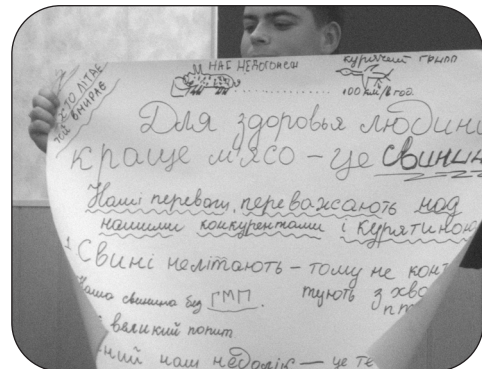 НАС НЕДОГОНЕШ
курячий грипп
100 км/в год.
ХТО ЛІТАЄ
ТОЙ ВМИРАЄ
Для здоровья людини
краще м'ясо – це свинин
Наші переваги, переважають над
нашими конкурентами і курятиною
1. Свині нелітають – тому не кон
тують з хво
Наша свинина без ГМП.
великий попит
ний наш недолік – це те